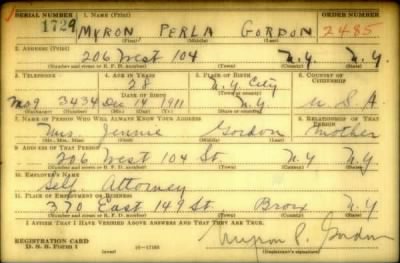 SERIAL NUMBER 1. NAME (Print) ORDER NUMBER
1729 MYRON PERLA GORDON 2485
(First) (Middle) (Last)
2. ADDRESS (Print)
206 West 104 N.Y. N.Y.
(Number and street or R. F. D. number) (Town) (County) (State)
3. TELEPHONE 4. AGE IN YEARS 5. PLACE OF BIRTH 6. COUNTRY OF CITIZENSHIP
28 N.Y. City
DATE OF BIRTH (Town or county)
3434 Dec 14 1911 N.Y. U.S.A.
(Exchange) (Number) (Mo.) (Day) (Yr.) (State or country)
7. NAME OF PERSON WHO WILL ALWAYS KNOW YOUR ADDRESS 8. RELATIONSHIP OF THAT PERSON
Mrs. Jennie Gordon Mother
(Mr., Mrs., Miss) (First) (Middle) (Last)
9. ADDRESS OF THAT PERSON
206 West 104 St. N.Y N.Y
(Number and street or R. F. D. number) (Town) (County) (State)
10. EMPLOYER'S NAME
Self Attorney
11. PLACE OF EMPLOYMENT OR BUSINESS
370 East 149 St. Bronx N.Y
(Number and street or R. F. D. number) (Town) (County) (State)
I AFFIRM THAT I HAVE VERIFIED ABOVE ANSWERS AND THAT THEY ARE TRUE.
REGISTRATION CARD
D. S. S. Form 1 Myron P. Gordon
(Registrant's signature)